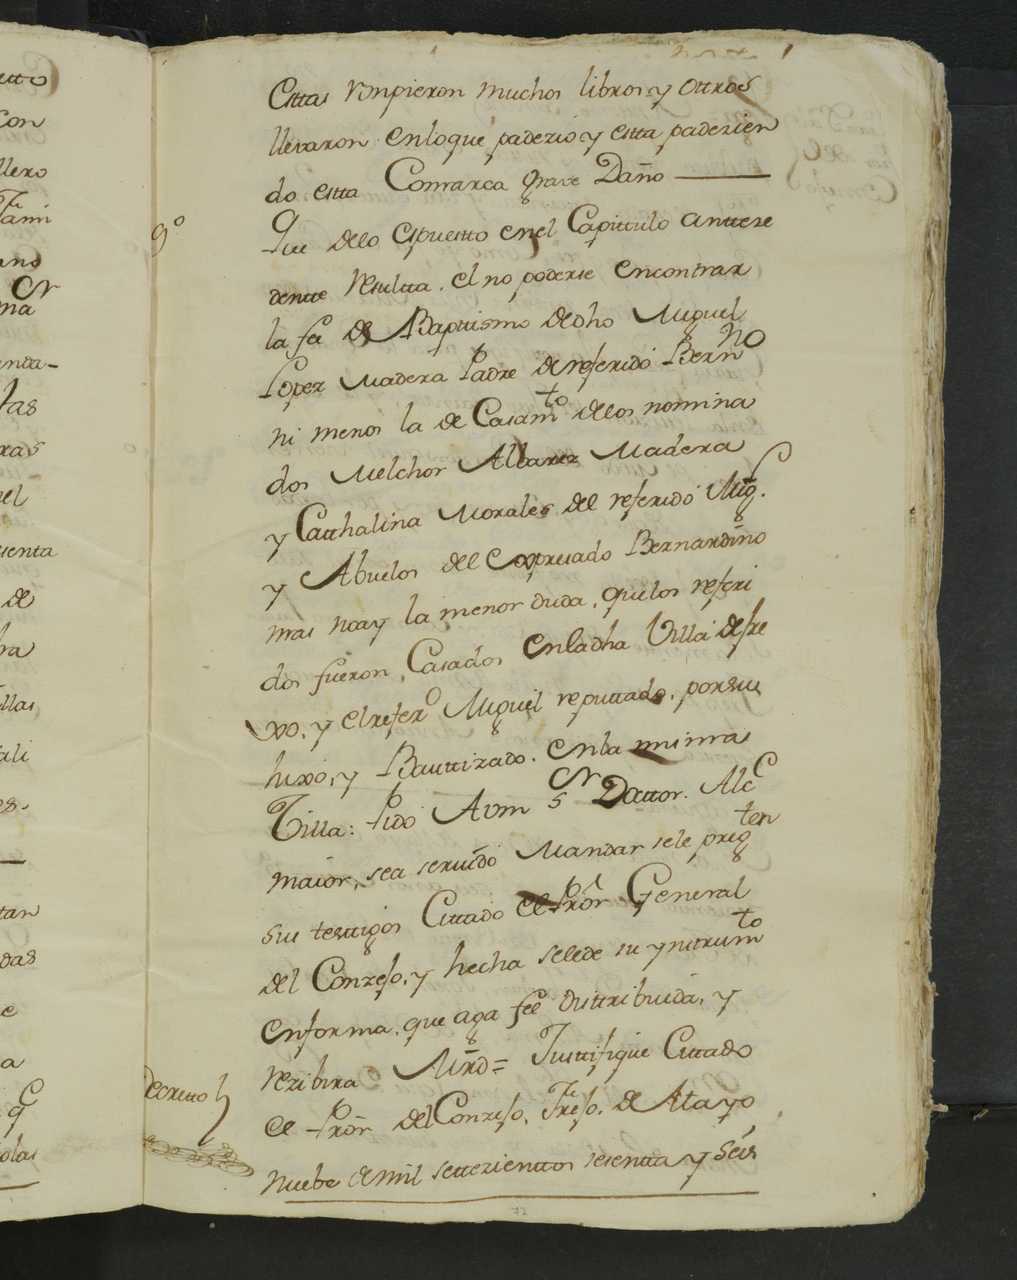 Esttas rompieron muchos libros y ottros
llevaron enloque padezio y estta padezien
do estta Comarca grave Daño
9º
Que delo espuestto enel Capittulo anttere
dentte resultta. el no poderse encontrar
la fee de Baptismo dedho Miguel
Lopez Madera Padre de referido Bernno
ni menos la de Casamto delos nomina
dos Melchor Albarez Madera
y Catthalina Morales del referido Mig.l
y Abuelos del expresado Bernardino
mas noay la menor duda, quelos referi
dos fueron Casados enladha Villa defre
xo, y elrefero Miguel reputtado, porsu
hixo, y Bauttizado. enla misma
Villa: Pido Avm sr Dottor. Alce
maior, sea servido Mandar sele preg
ten
sus testtigos Cittado el Pror General
del Conzejo, y hecha selede su ynstrumto
enforma, que aga fee disttribuida, y
rezibira Mrd= Justtifique Cittado
Decretto
el Pror del Conzejo, Frejo. de Mayo
nuebe de mil settezienttos sesentta y seis
72
con
llero
de